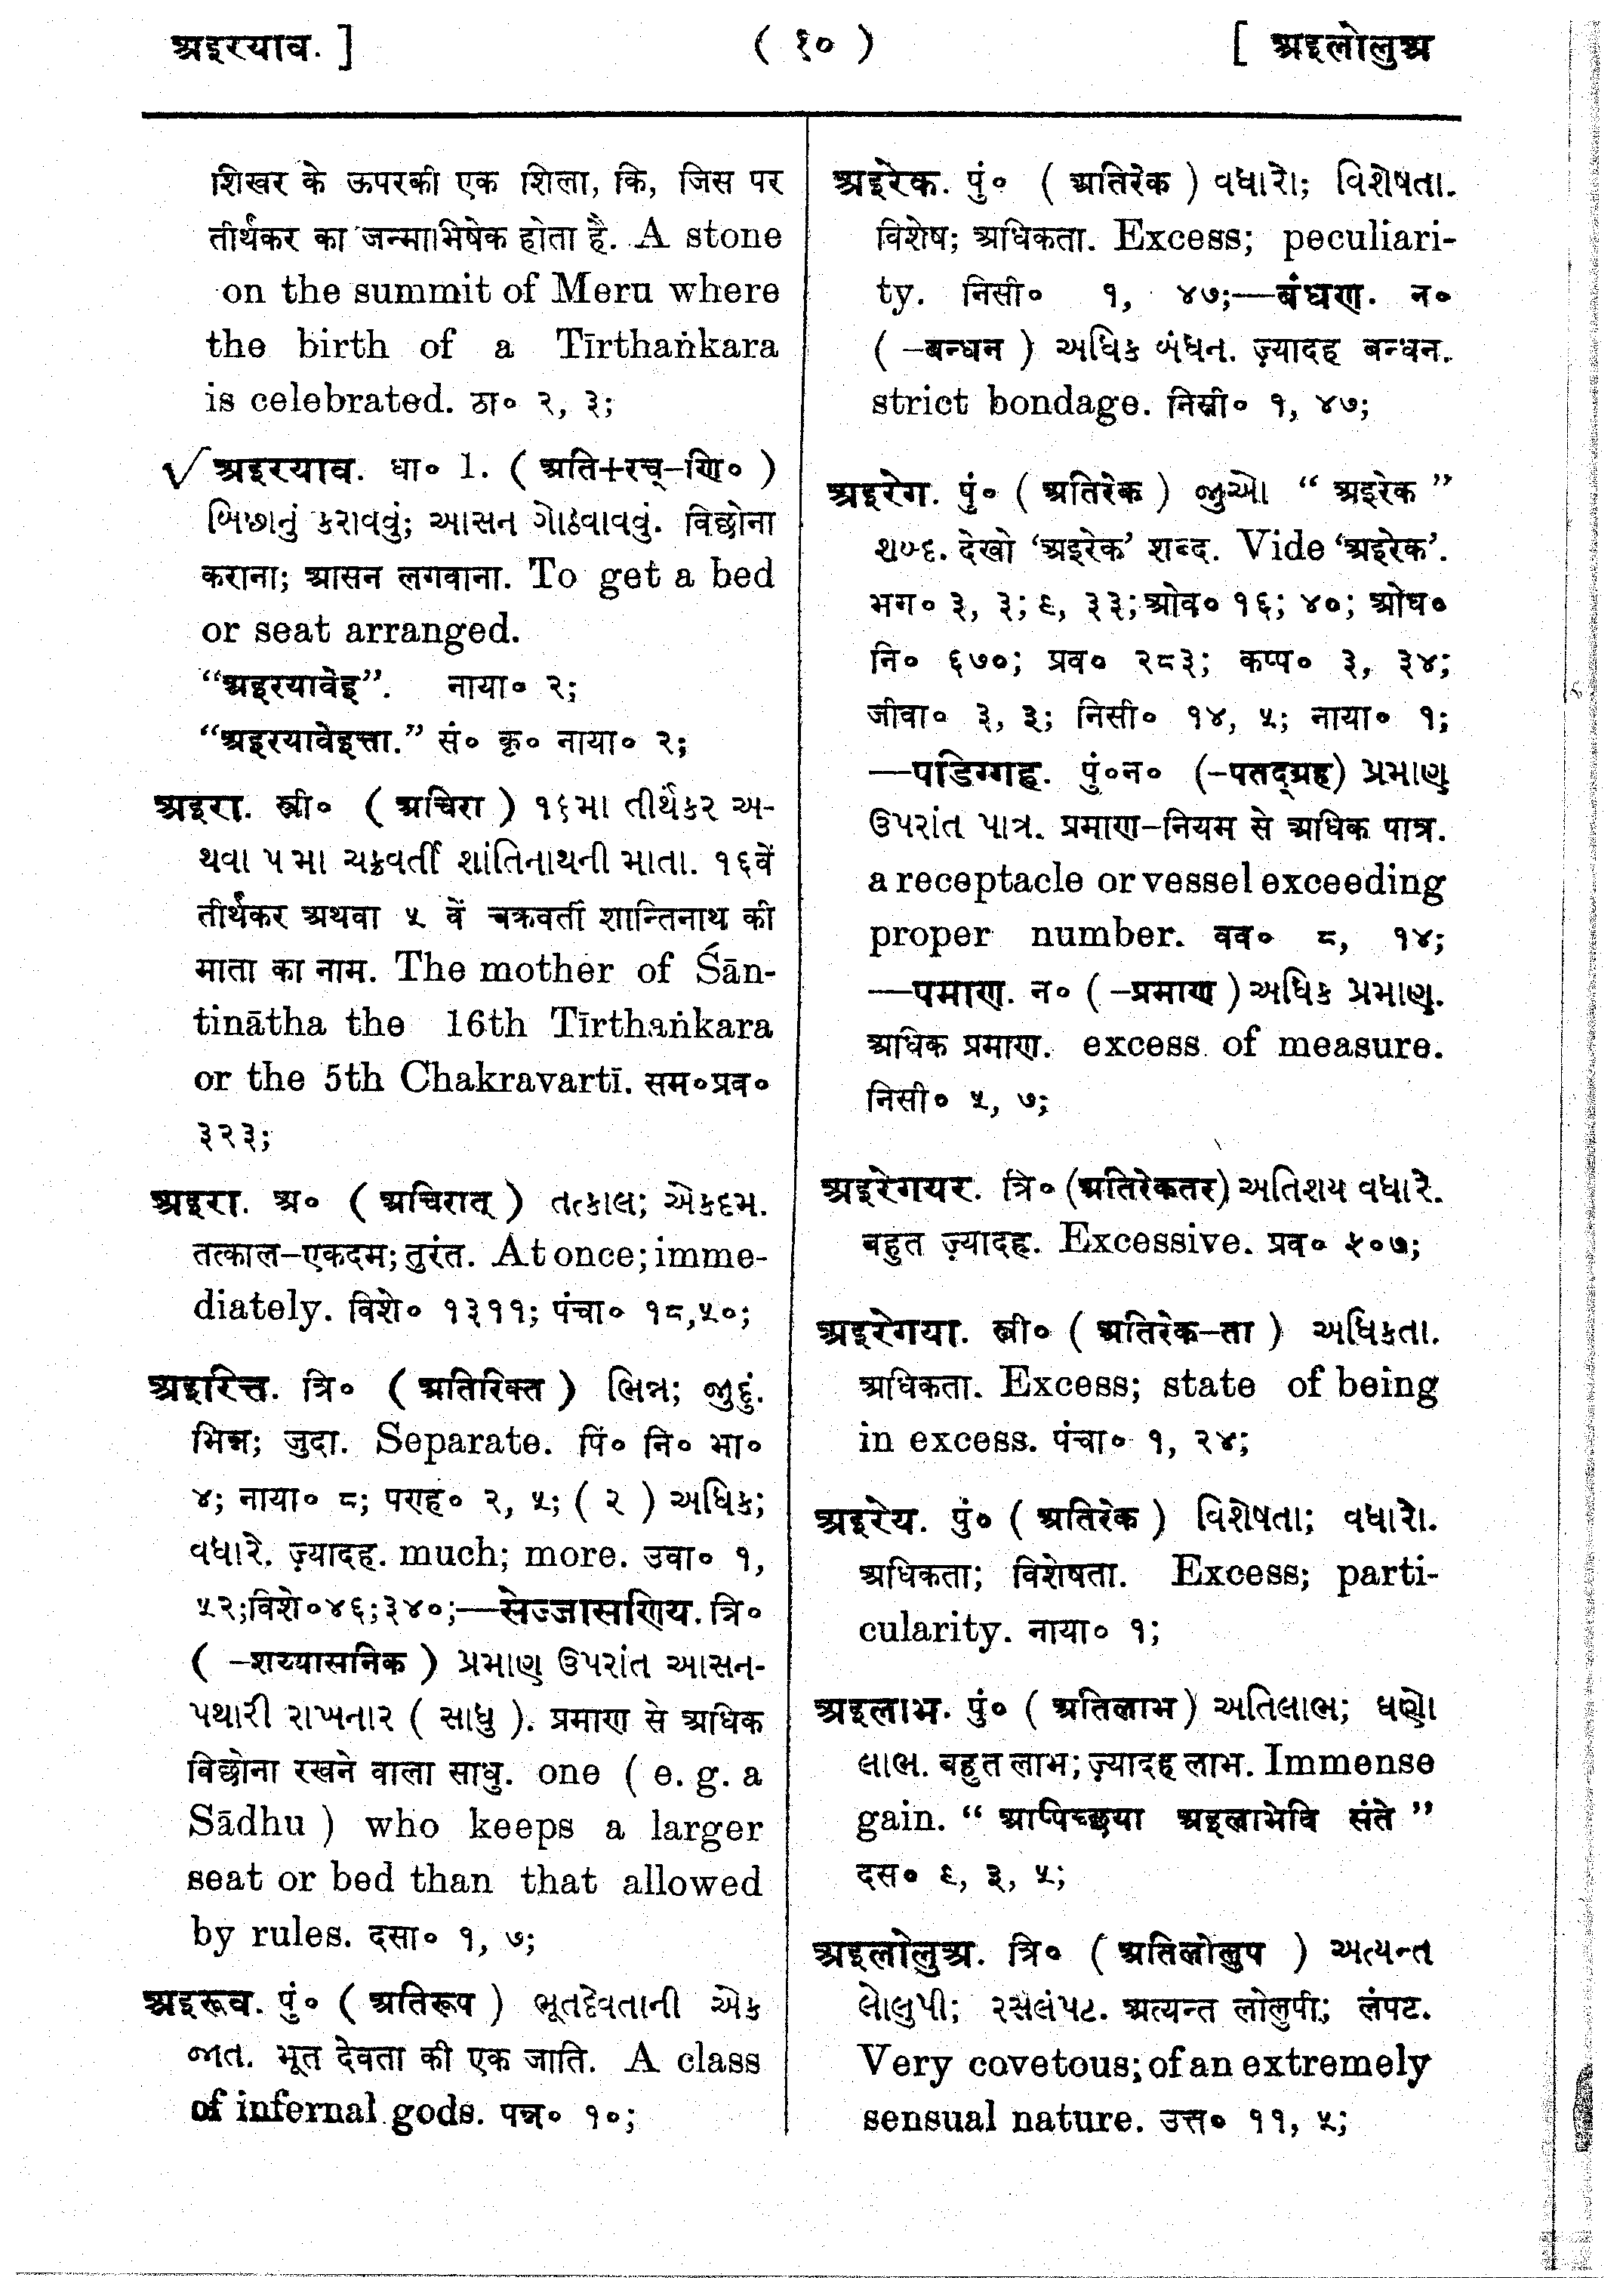 अइरयाव. ]
( १० )
[ अइलोलुअ
शिखर के ऊपरकी एक शिला, कि, जिस पर
तीर्थंकर का जन्माभिषेक होता है. A stone
on the summit of Meru where
the birth of a Tīrthaṅkara
is celebrated. ठा० २, ३;
√ अइरयाव. धा० I. ( अति+रच्-णि० )
બિછાનું કરાવવું; આસન ગોઠવાવવું. विछोना
कराना; आसन लगवाना. To get a bed
or seat arranged.
“अइरयावेइ”. नाया० २;
“अइरयावेइत्ता.” सं० कृ० नाया० २;
अइरा. स्त्री० ( अचिरा ) ૧૬મા તીર્થંકર અ-
થવા ૫ મા ચક્રવર્તી શાંતિનાથની માતા. १६वें
तीर्थंकर अथवा ५ वें चक्रवर्ती शान्तिनाथ की
माता का नाम. The mother of Śān-
tinātha the 16th Tīrthaṅkara
or the 5th Chakravartī. सम०प्रव०
३२३;
अइरा. अ० ( अचिरात् ) તત્કાલ; એકદમ.
तत्काल-एकदम; तुरंत. At once; imme-
diately. विशे० १३११; पंचा० १८,५०;
अइरित्त. त्रि० ( अतिरिक्त ) ભિન્ન; જુદું.
भिन्न; जुदा. Separate. पिं० नि० भा०
४; नाया० ८; पण्ह० २, ५; ( २ ) અધિક;
વધારે. ज़्यादह. much; more. उवा० १,
५२;विशे०४६;३४०;—सेज्जासणिय. त्रि०
( -शय्यासनिक ) પ્રમાણ ઉપરાંત આસન-
પથારી રાખનાર ( સાધુ ). प्रमाण से अधिक
विछोना रखने वाला साधु. one ( e. g. a
Sādhu ) who keeps a larger
seat or bed than that allowed
by rules. दसा० १, ७;
अइरूव. पुं० ( अतिरूप ) ભૂતદેવતાની એક
જાત. भूत देवता की एक जाति. A class
of infernal gods. पन्न० १०;
अइरेक. पुं० ( अतिरेक ) વધારો; વિશેષતા.
विशेष; अधिकता. Excess; peculiari-
ty. निसी० १, ४७;—बंधण. न०
( -बन्धन ) અધિક બંધન. ज़्यादह बन्धन.
strict bondage. निसी० १, ४७;
अइरेग. पुं० ( अतिरेक ) જુઓ “ अइरेक ”
શબ્દ. देखो ‘अइरेक’ शब्द. Vide ‘अइरेक’.
भग० ३, ३; ९, ३३; ओव० १६; ४०; ओघ०
नि० ६७०; प्रव० २८३; कप्प० ३, ३४;
जीवा० ३, ३; निसी० १४, ५; नाया० १;
—पडिग्गह. पुं०न० (-पतद्ग्रह) પ્રમાણ
ઉપરાંત પાત્ર. प्रमाण-नियम से अधिक पात्र.
a receptacle or vessel exceeding
proper number. वव० ८, १४;
—पमाण. न० ( -प्रमाण ) અધિક પ્રમાણ.
अधिक प्रमाण. excess of measure.
निसी० ५, ७;
अइरेगयर. त्रि० (अतिरेकतर) અતિશય વધારે.
बहुत ज़्यादह. Excessive. प्रव० ५०७;
अइरेगया. स्त्री० ( अतिरेक-ता ) અધિકતા.
अधिकता. Excess; state of being
in excess. पंचा० १, २४;
अइरेय. पुं० ( अतिरेक ) વિશેષતા; વધારો.
अधिकता; विशेषता. Excess; parti-
cularity. नाया० १;
अइलाभ. पुं० ( अतिलाभ ) અતિલાભ; ઘણો
લાભ. बहुत लाभ; ज़्यादह लाभ. Immense
gain. “ अप्पिच्छया अइलाभेवि संते ”
दस० ९, ३, ५;
अइलोलुअ. त्रि० ( अतिलोलुप ) અત્યન્ત
લોલુપી; રસલંપટ. अत्यन्त लोलुपी; लंपट.
Very covetous; of an extremely
sensual nature. उत्त० ११, ५;